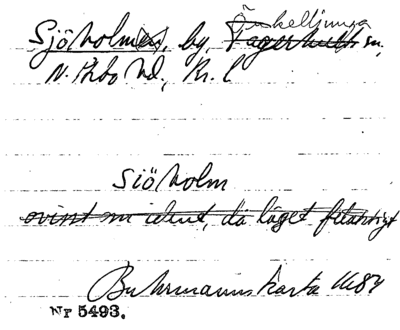 Örkelljunga
Sjöholmen, by, Fagerhult sn,
N. Åsbo hd, Kr. l
Sjöholm
ovisst om ident, då läget felaktigt
Buhrmanns karta 1684
Nr 5493.